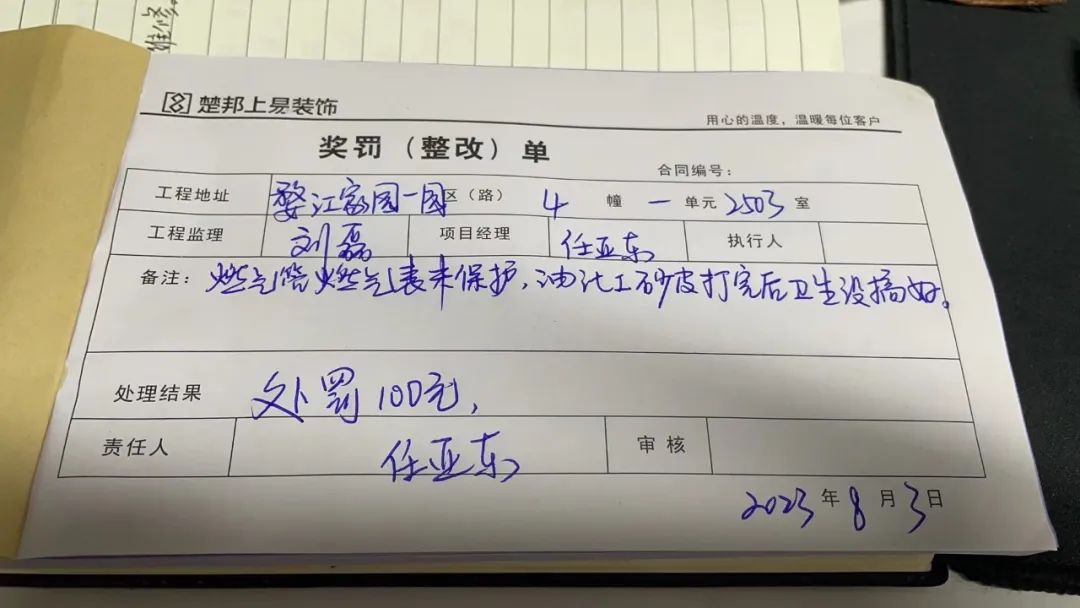 维修
楚邦上易装饰
用心的温度，温暖每位客户
奖罚（整改）单
合同编号：
工程地址 婺江家园一园区（路） 4 幢 一 单元 2503 室
工程监理 刘磊 项目经理 任亚东 执行人
备注：燃气管燃气表未保护，油漆工砂皮打完后卫生没搞好。
处理结果 处罚100元，
责任人 任亚东 审核
2023年8月3日